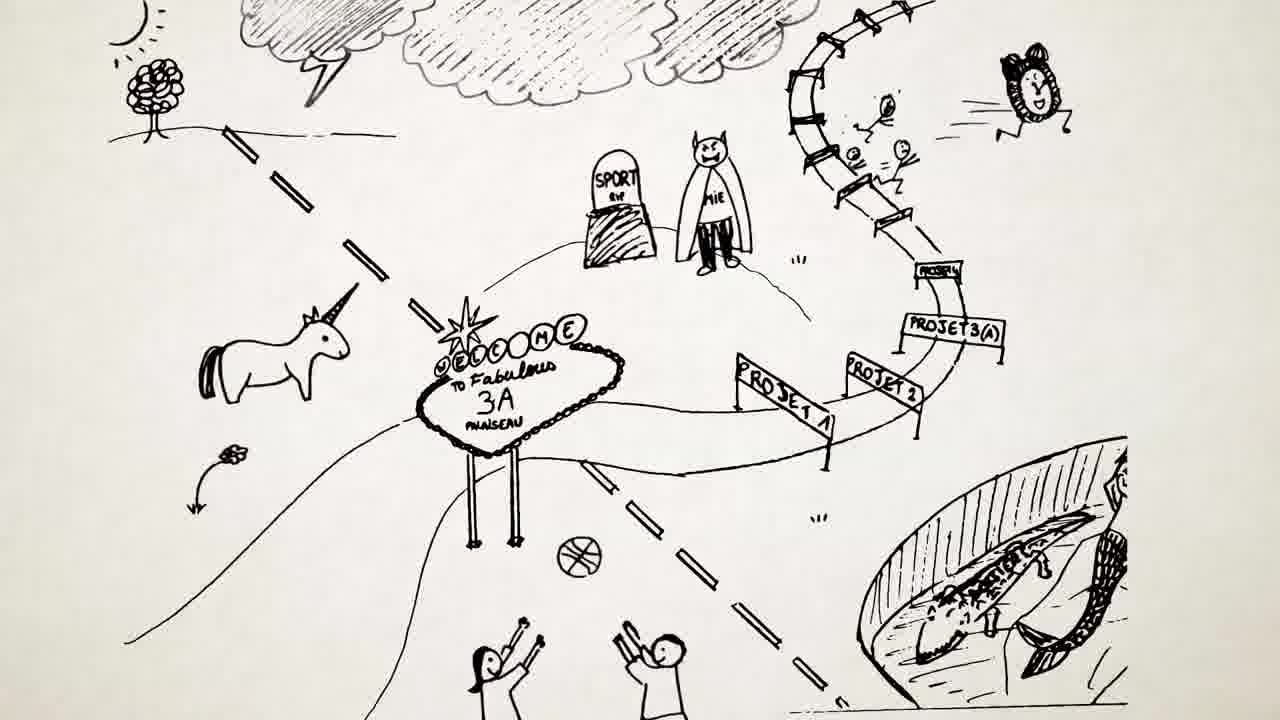 SPORT
RIP
MIE
WELC ME
TO Fabulous
3A
PALAISEAU
PROJET 3(A)
PROJET 2
PROJET 1